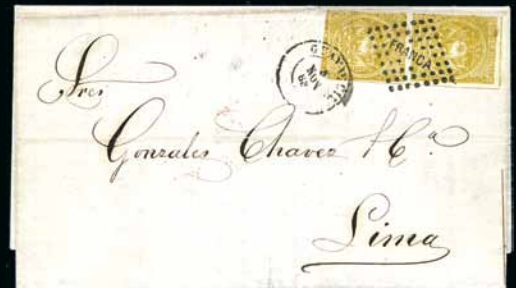 FRANCA
NOV
Sres
Gonzales Chavez & Cª
Lima